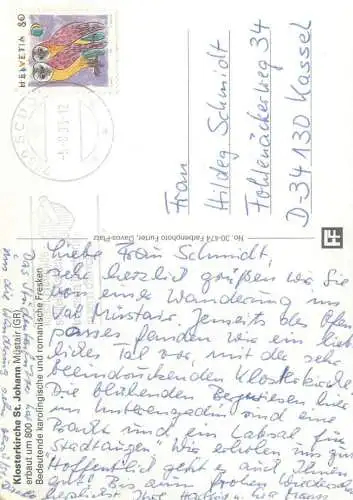 HELVETIA 80
Frau
Hildeg Schmidt
Fohlenäckerweg 34
D-34130 Kassel
No. 30-474 Farbenphoto Furter, Davos-Platz
Klosterkirche St. Johann Müstair (GR)
erbaut um 800
Bedeutende karolingische und romanische Fresken
Liebe Frau Schmidt,
sehr herzlich grüßen wir Sie
von einer Wanderung ins
Val Müstair. Jenseits des Ofen
passes fanden wir ein lieb
liches Tal vor, mit der sehr
beeindruckenden Klosterkirche.
Die blühenden Bergwiesen hier
im Unterengadin sind eine
Pracht und ein Labsal für
"Stadtaugen". Wir erholen uns gut.
Hoffentlich geht es auch Ihnen
gut! Bis zum frohen Wiedersehn
herzlichst Ihre